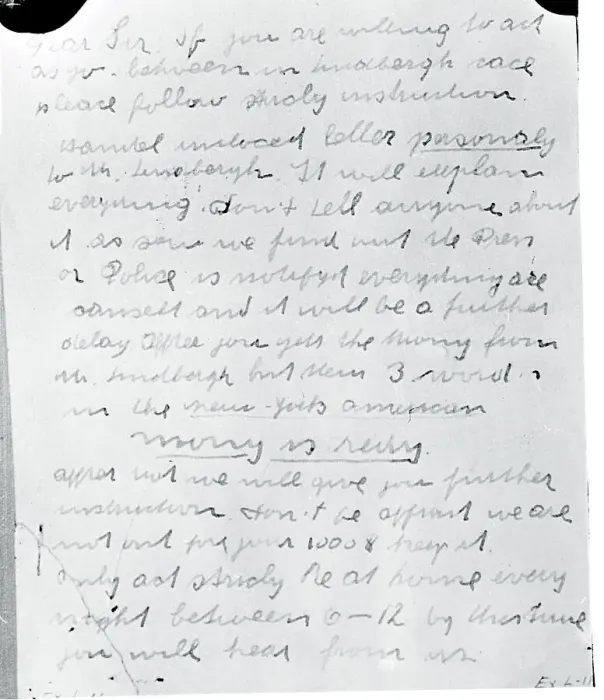 Dear Sir: If you are willing to act
as go-between in Lindbergh cace
pleace follow stricly instruction.
Handel incloced letter personaly
to Mr. Lindbergh. It will explan
everyting. don't tell anyone about
it as soon we find out the Press
or Police is notifyed everyting are
cansell and it will be a further
delay. Affter you gett the mony from
Mr. Lindbergh put them 3 words
in the New-York american
mony is redy.
affter not we will give you further
instruction. don't be affrait we are
not out for your 1000$ keep it.
Only act stricly. Be at home every
night between 6-12 by this time
you will hear from us.
Ex L-11